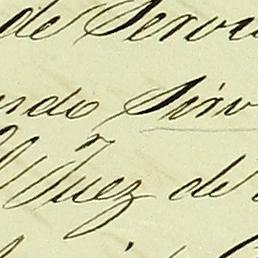 de Servi
ndo Sirv
Juez de